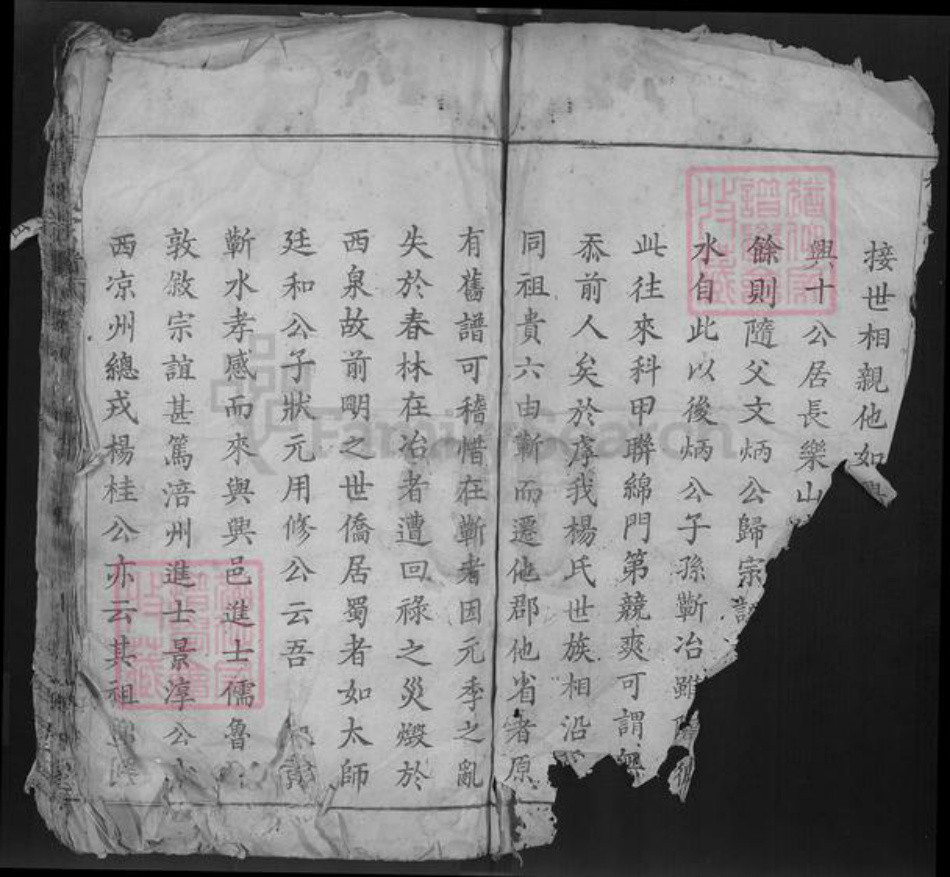 接世相親他如
興十公居長樂山
餘則隨父文炳公歸宗
水自此以後炳公子孫蘄冶雖
此往來科甲聯綿門第競爽可謂無
忝前人矣於虖我楊氏世族相沿
同祖貴六由蘄而遷他郡他省者原
有舊譜可稽惜在蘄者因元季之亂
失於春林在冶者遭回祿之災燬於
西泉故前明之世僑居蜀者如太師
廷和公子狀元用修公云吾
蘄水孝感而來與興邑進士儒魯
敦敘宗誼甚篤涪州進士景淳公
西凉州總戎楊桂公亦云其祖
FamilySearch